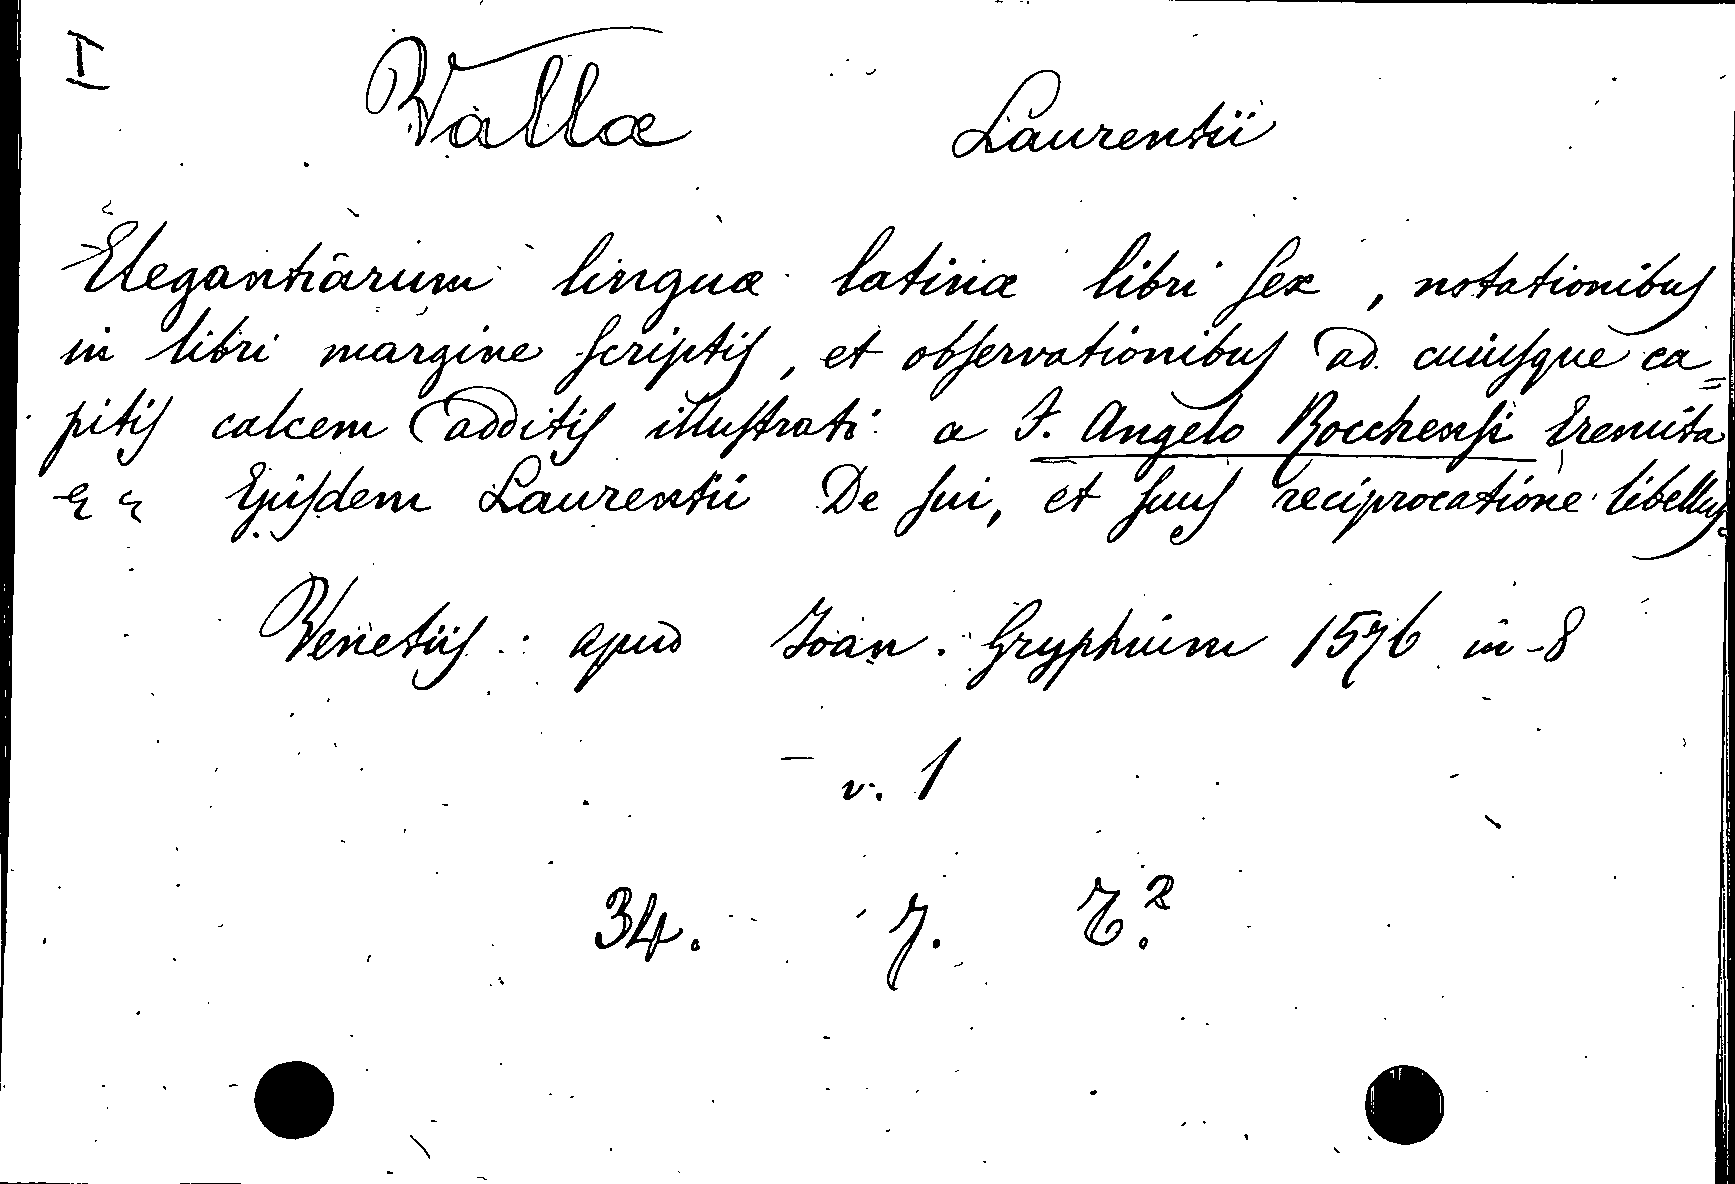 I
Vallæ Laurentii
Elegantiarum linguæ latinæ libri sex, notationibus
in libri margine scriptis, et observationibus ad cuiusque ca=
pitis calcem additis illustrati a F. Angelo Rocchensi Eremita
Ejusdem Laurentii De sui, et suus reciprocatione libellus.
Venetiis: apud Joan. Gryphium 1576 in-8
v. 1
34. 7.